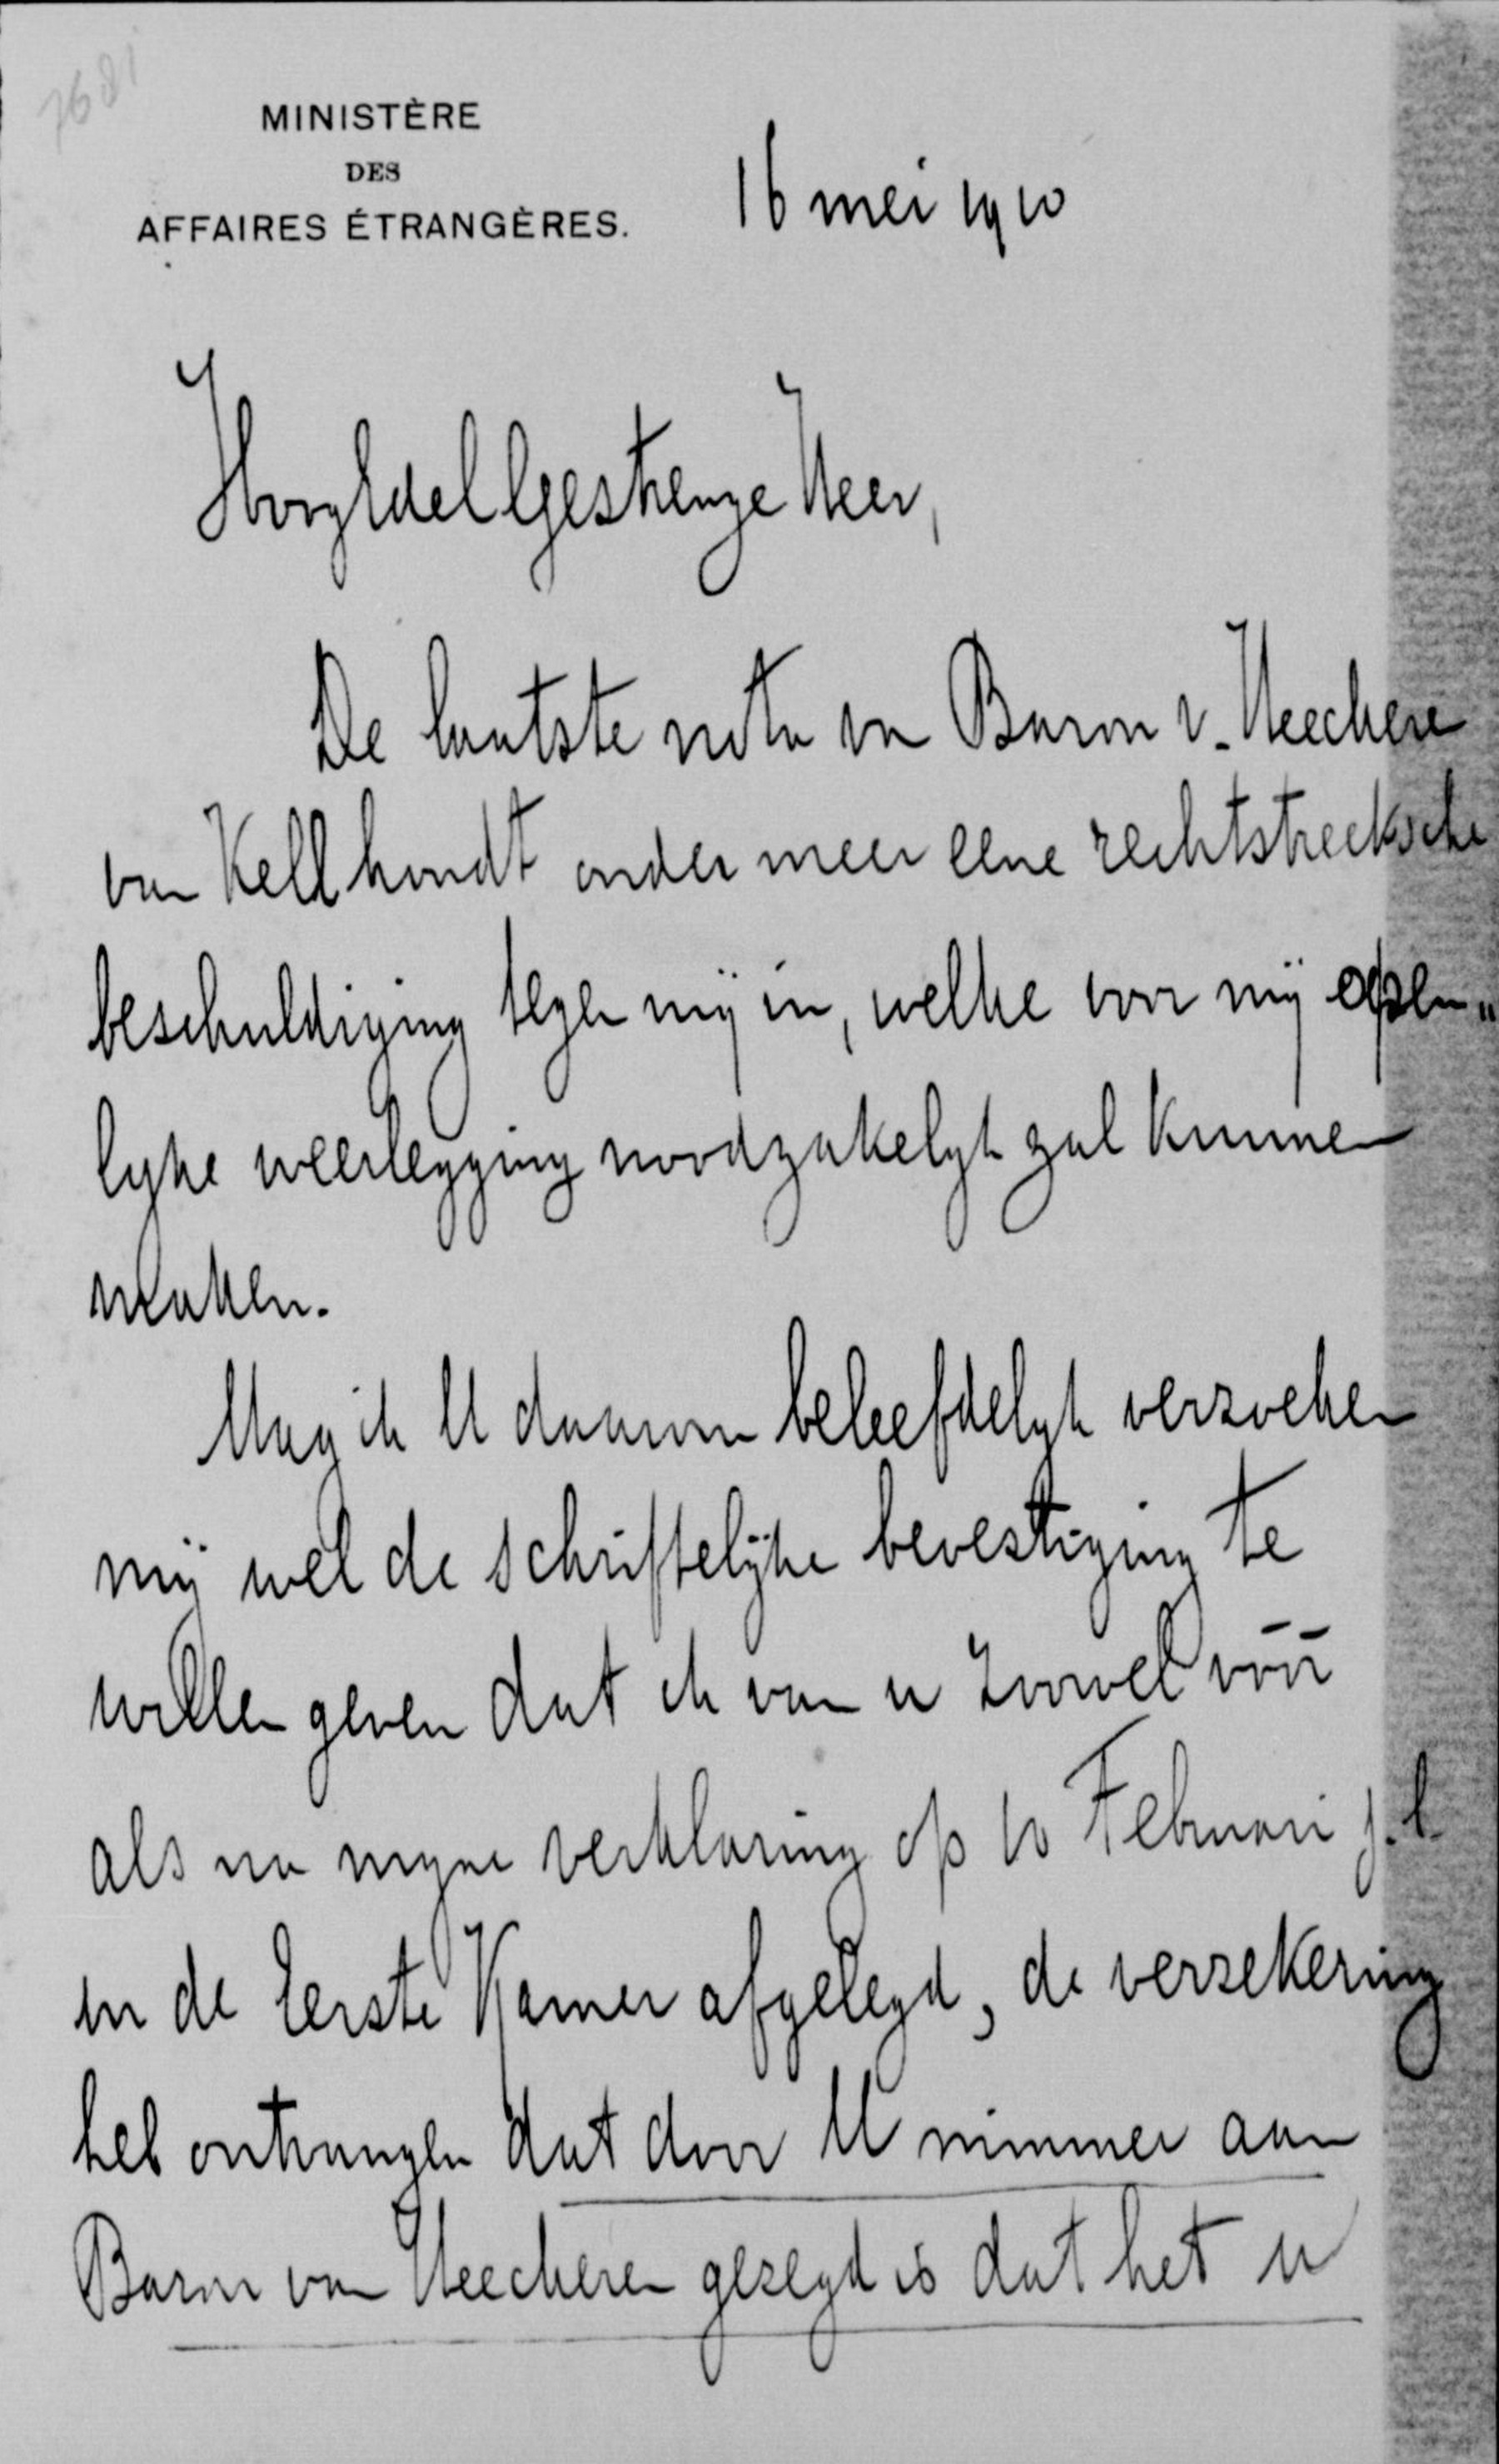 7681
MINISTÈRE
DES
AFFAIRES ÉTRANGÈRES.
16 mei 1910
HoogEdelGestrenge Heer,
De laatste nota van Baron v. Heeckere
van Kell houdt onder meer eene rechtstreeksche
beschuldiging tegen mij in, welke voor mij open„
lijke weerlegging noodzakelijk zal kunnen
maken.
Mag ik U daarom beleefdelijk verzoeken
mij wel de schriftelijke bevestiging te
willen geven dat ik van u zoowel vóór
als na mijne verklaring op 10 Februari j.l.
in de Eerste Kamer afgelegd, de verzekering
heb ontvangen dat door U nimmer aan
Baron van Heeckeren gezegd is dat het u